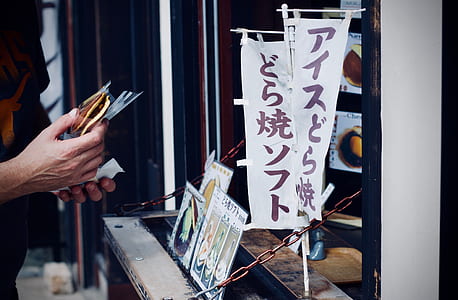 アイスどら焼
どら焼ソフト